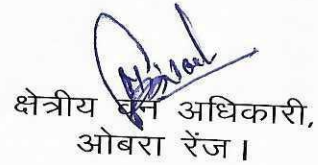 क्षेत्रीय वन अधिकारी,
ओबरा रेंज।